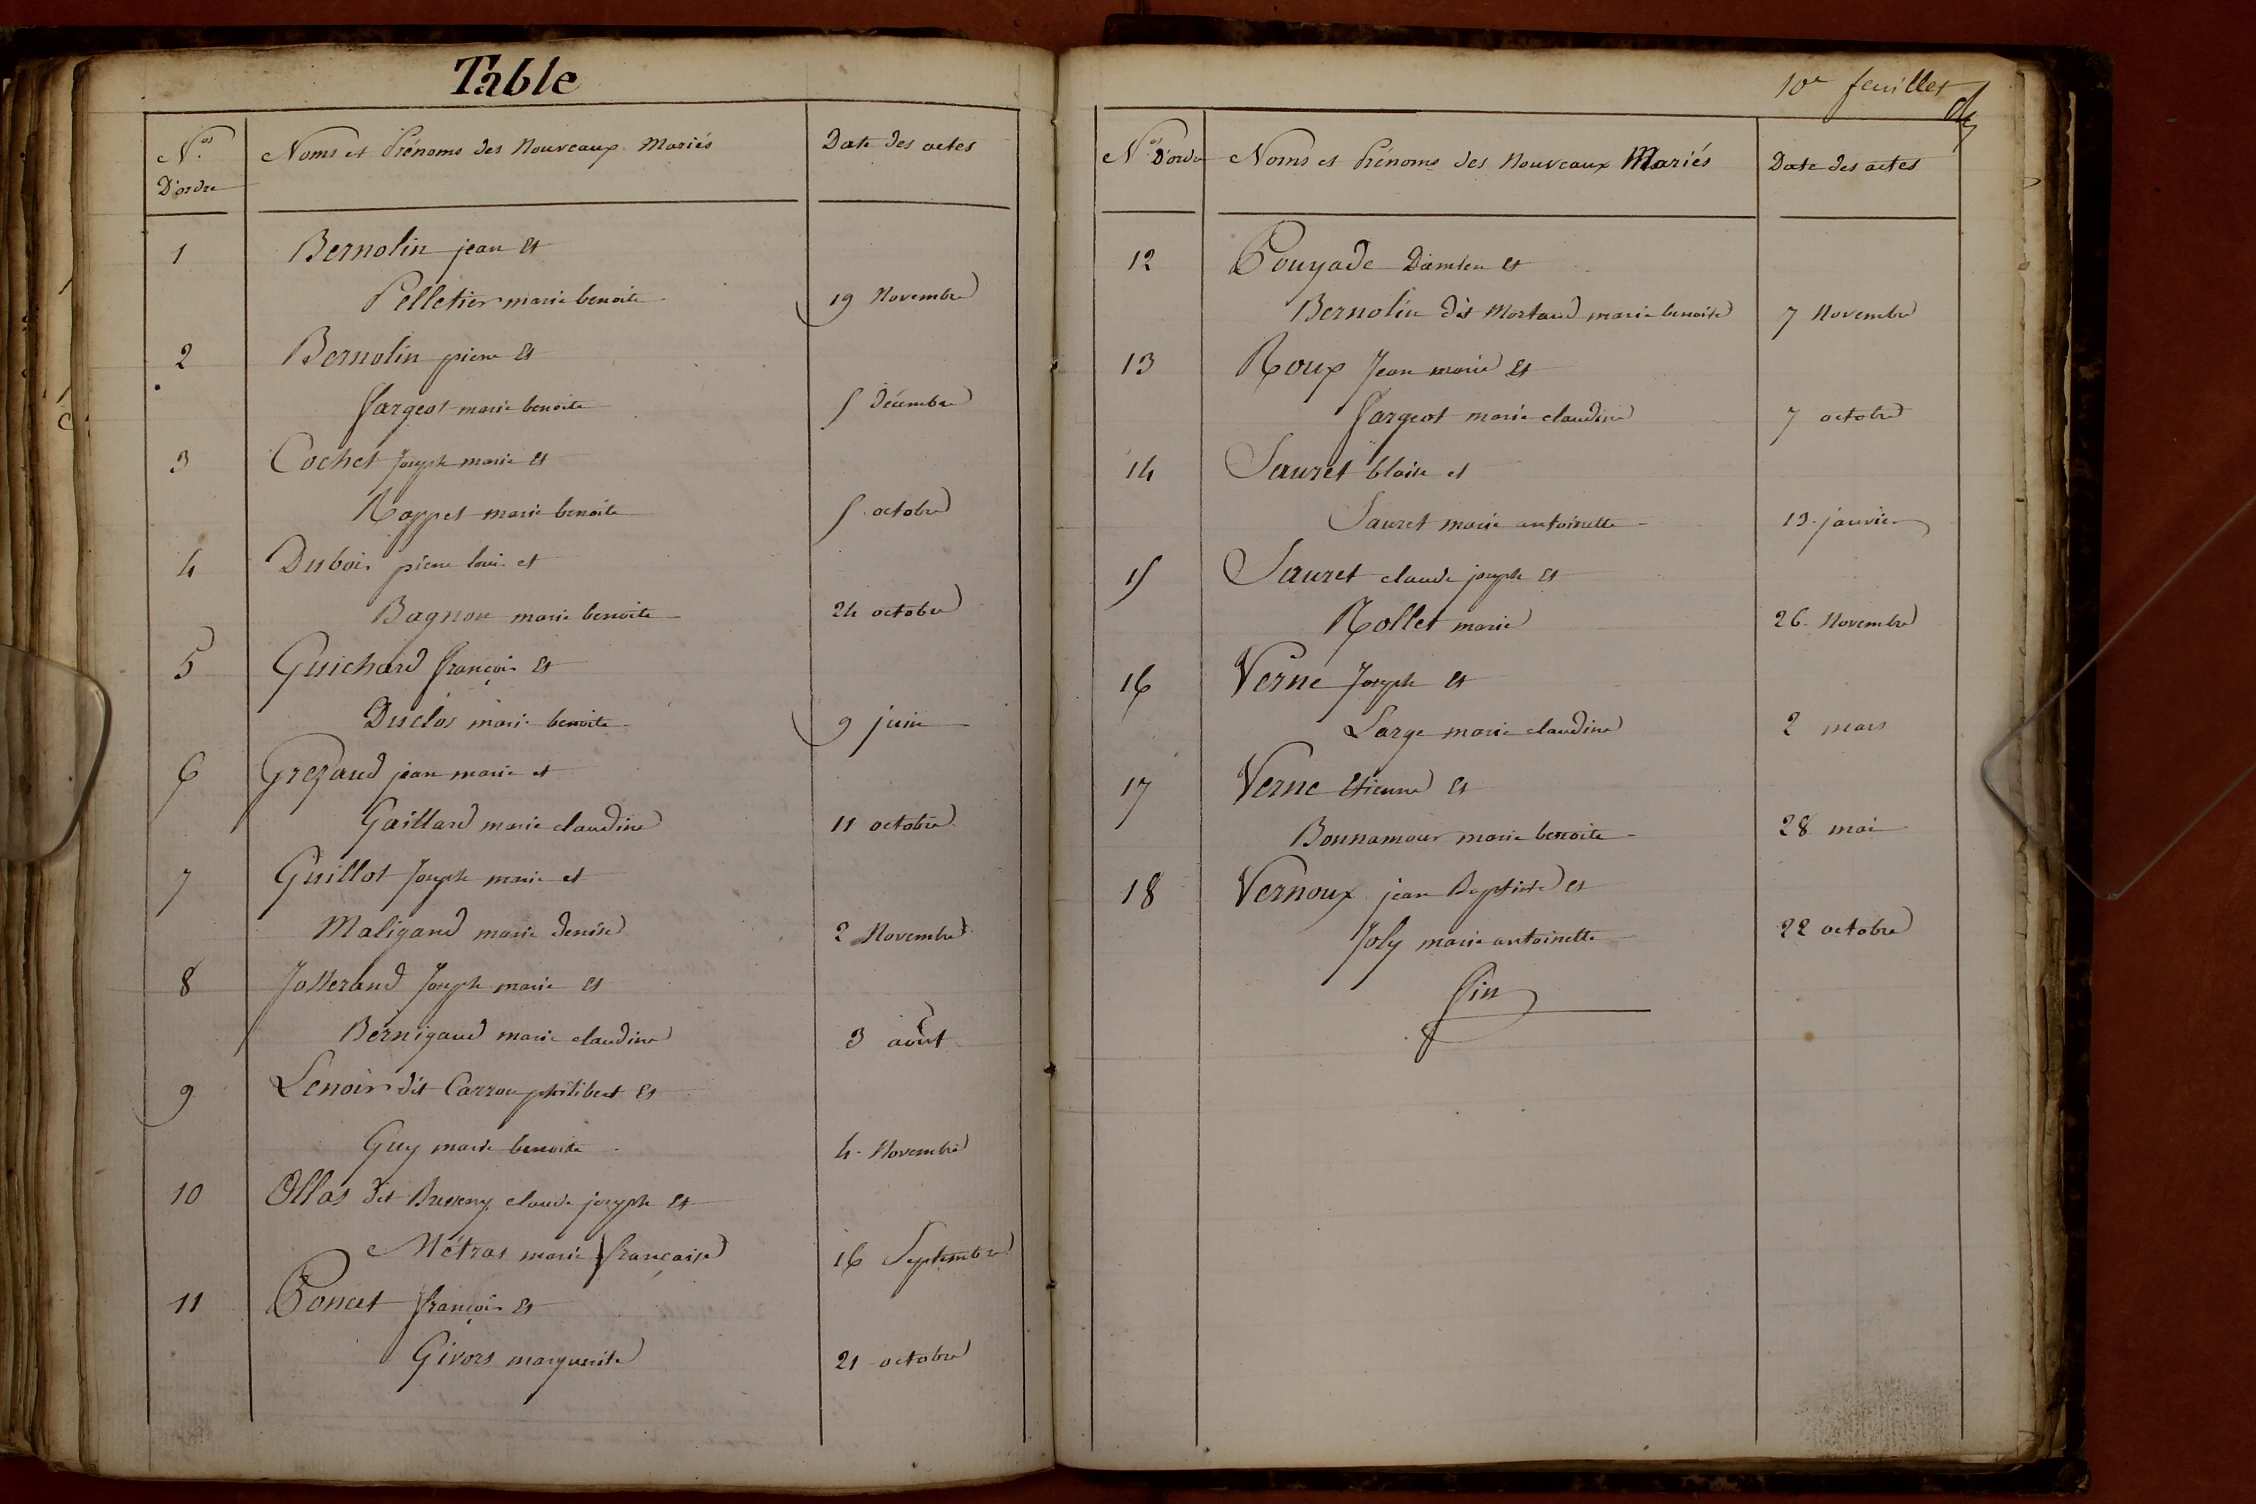 Table
Nos D'ordre
Noms et Prénoms des Nouveaux Mariés
Date des actes
1 Bernolin jean Et
Pelletier marie benoite 19 Novembre
2 Bernolin pierre Et
Fargeot marie benoite 5 Décembre
3 Cochet Joseph marie Et
Roppet marie benoite 5 octobre
4 Dubois pierre louis et
Bagnon marie benoite 24 octobre
5 Guichard françois Et
Duclos marie benoite 9 juin
6 Grezaud jean marie et
Gaillard marie claudine 11 octobre
7 Guillot Joseph marie et
Maligand marie denise 2 Novembre
8 Josserand Joseph marie Et
Bernigaud marie claudine 3 août
9 Lenoir dit Carrou philibert Et
Guy marie benoite 4 Novembre
10 Ollas dit claude joseph Et
Métras marie françoise 16 Septembre
11 Poncet françois Et
Givors marguerite 21 octobre
10e feuillet
Nos D'ordre
Noms et Prénoms des Nouveaux Mariés
Date des actes
12 Pouyade Damien Et
Bernolin dit Mortaud marie benoite 7 Novembre
13 Roux Jean marie Et
Fargeot marie claudine 7 octobre
14 Sauret blaise et
Sauret marie antoinette 19 janvier
15 Sauret claude joseph Et
Rollet marie 26 Novembre
16 Verne Joseph Et
Large marie claudine 2 mars
17 Verne Etienne Et
Bonnamour marie benoite 28 mai
18 Vernoux jean Baptiste et
Joly marie antoinette 22 octobre
Fin